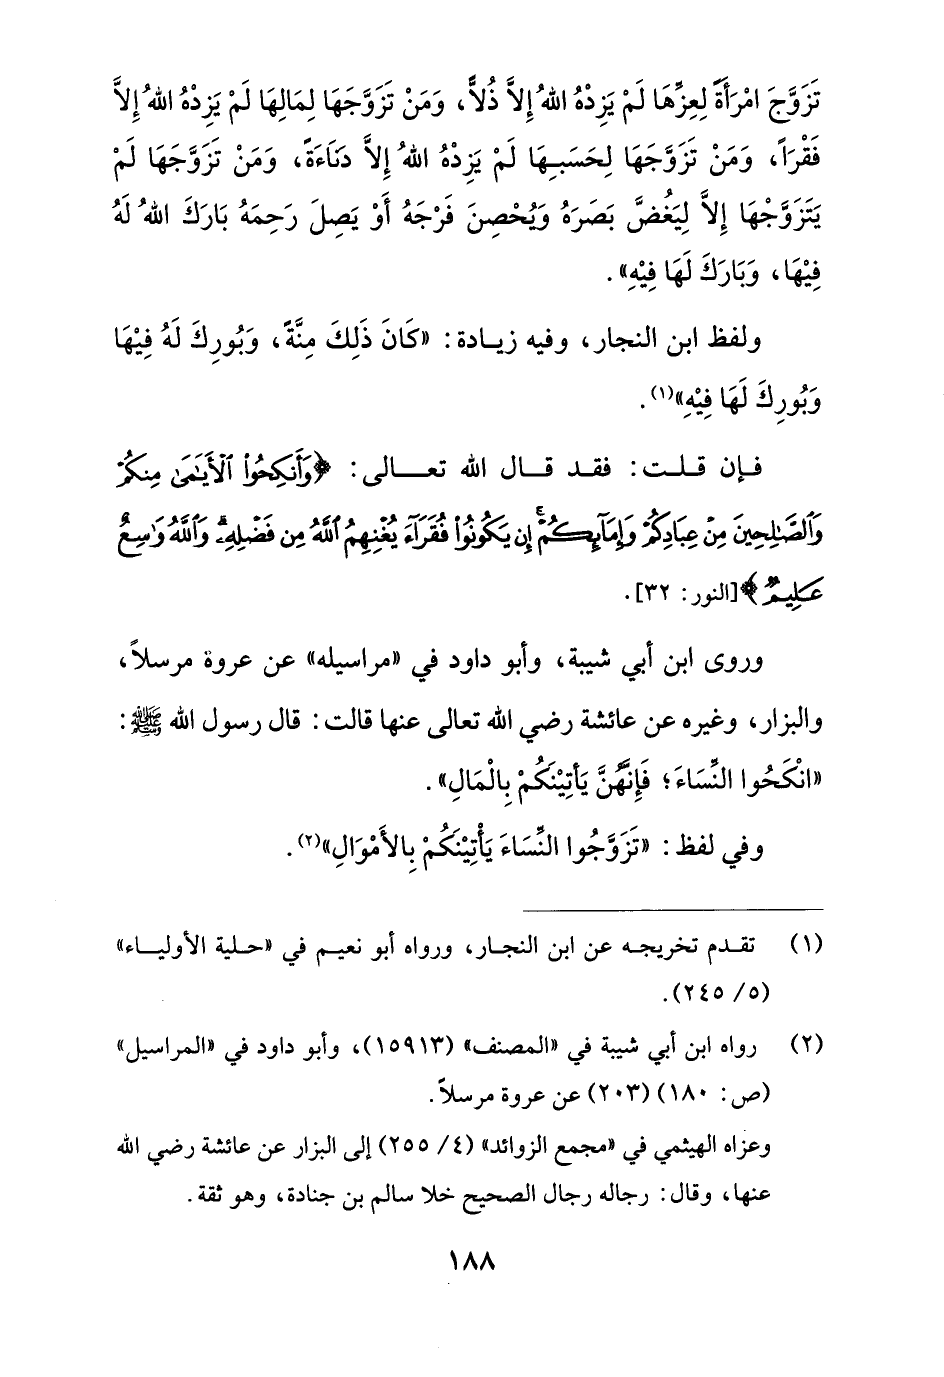 تَزَوَّجَ امْرَأَةً لِعِزِّهَا لَمْ يَزِدْهُ اللهُ إِلاَّ ذُلاًّ، وَمَنْ تَزَوَّجَهَا لِمَالِهَا لَمْ يَزِدْهُ اللهُ إِلاَّ
فَقْرَاً، وَمَنْ تَزَوَّجَهَا لِحَسَبِهَا لَمْ يَزِدْهُ اللهُ إِلاَّ دَنَاءَةً، وَمَنْ تَزَوَّجَهَا لَمْ
يَتَزَوَّجْهَا إِلاَّ لِيَغُضَّ بَصَرَهُ وَيُحْصِنَ فَرْجَهُ أَوْ يَصِلَ رَحِمَهُ بَارَكَ اللهُ لَهُ
فِيْهَا، وَبَارَكَ لَهَا فِيْهِ».
ولفظ ابن النجار، وفيه زيادة: «كَانَ ذَلِكَ مِنَّةً، وَبُورِكَ لَهُ فِيْهَا
وَبُورِكَ لَهَا فِيْهِ»(١).
فإن قلت: فقد قال الله تعالى: ﴿وَأَنكِحُوا۟ ٱلْأَيَـٰمَىٰ مِنكُمْ
وَٱلصَّـٰلِحِينَ مِنْ عِبَادِكُمْ وَإِمَآئِكُمْ ۚ إِن يَكُونُوا۟ فُقَرَآءَ يُغْنِهِمُ ٱللَّهُ مِن فَضْلِهِۦ ۗ وَٱللَّهُ وَٰسِعٌ
عَلِيمٌ﴾ [النور: ٣٢].
وروى ابن أبي شيبة، وأبو داود في «مراسيله» عن عروة مرسلاً،
والبزار، وغيره عن عائشة رضي الله تعالى عنها قالت: قال رسول الله ﷺ:
«انْكَحُوا النِّسَاءَ؛ فَإِنَّهُنَّ يَأْتِيْنَكُمْ بِالْمَالِ».
وفي لفظ: «تَزَوَّجُوا النِّسَاءَ يَأْتِيْنَكُمْ بِالأَمْوَالِ»(٢).
(١) تقدم تخريجه عن ابن النجار، ورواه أبو نعيم في «حلية الأولياء»
(٥/ ٢٤٥).
(٢) رواه ابن أبي شيبة في «المصنف» (١٥٩١٣)، وأبو داود في «المراسيل»
(ص: ١٨٠) (٢٠٣) عن عروة مرسلاً.
وعزاه الهيثمي في «مجمع الزوائد» (٤/ ٢٥٥) إلى البزار عن عائشة رضي الله
عنها، وقال: رجاله رجال الصحيح خلا سالم بن جنادة، وهو ثقة.
١٨٨